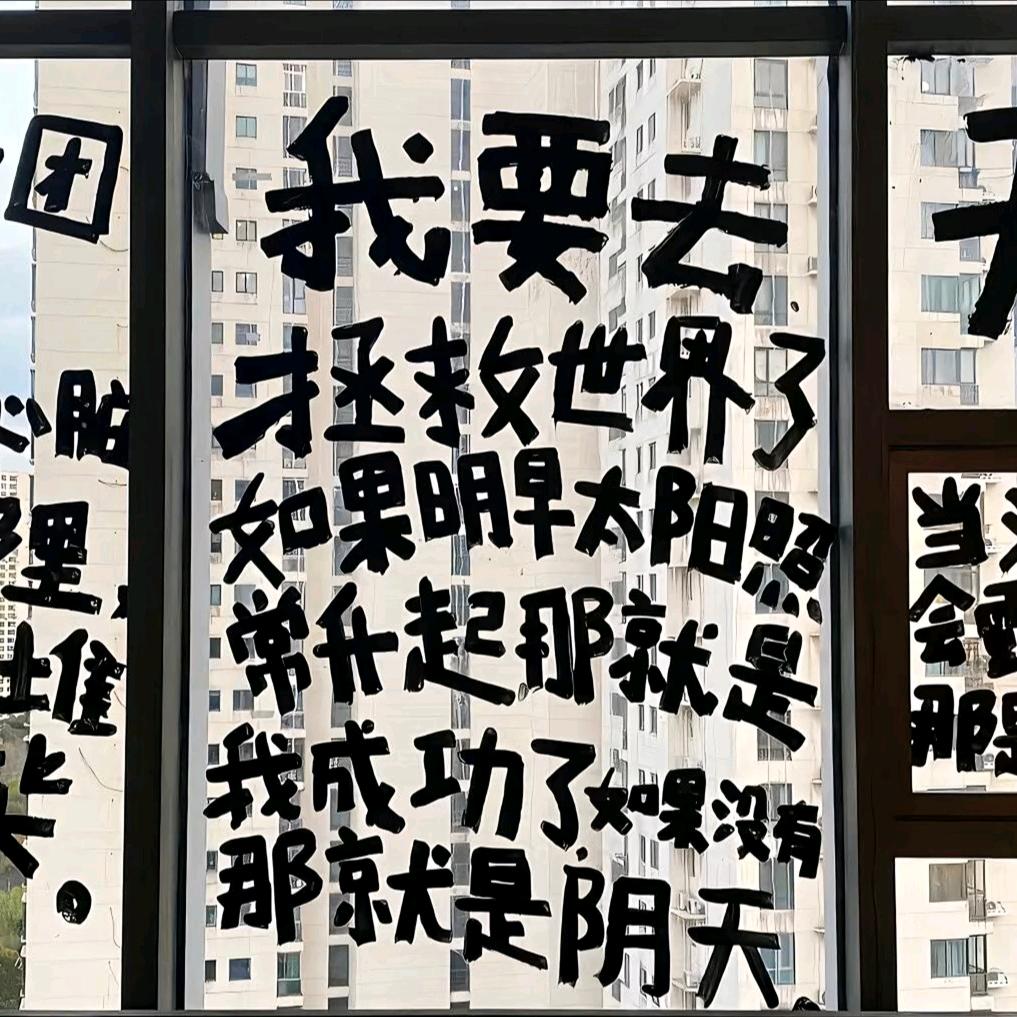 团
心脏
里，
上催
我要去
拯救世界了
如果明早太阳照
常升起那就是
我成功了如果没有
那就是阴天。
当
会
那是